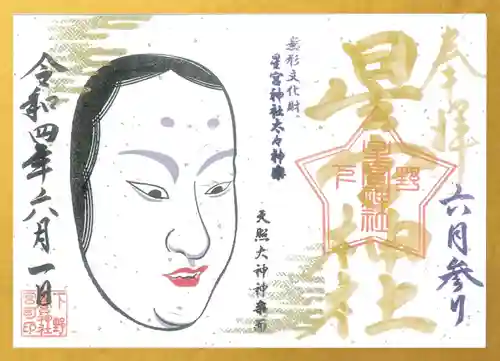 奉拝
六月参り
星宮神社
下野
星宮神社
無形文化財
星宮神社太々神楽
天照大神神楽面
令和四年六月一日
下野
星宮神社
宮司印